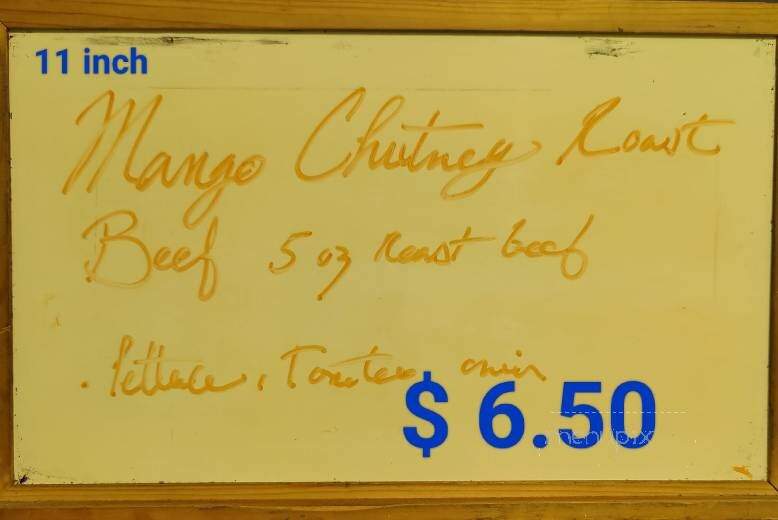 11 inch
Mango Chutney Roast
Beef 5 oz Roast beef
. lettuce, Tomatoe onion
$ 6.50
menupix